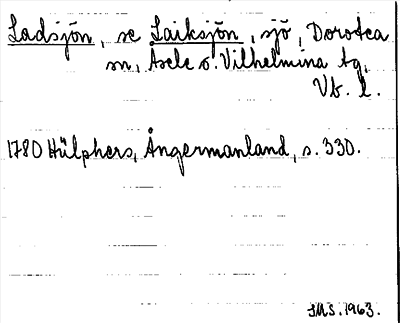 Ladsjön, se Laiksjön, sjö, Dorotea
sn, Åsele o. Vilhelmina tg,
Vb. l.
1780 Hülphers, Ångermanland, s. 330.
IMS. 1963.